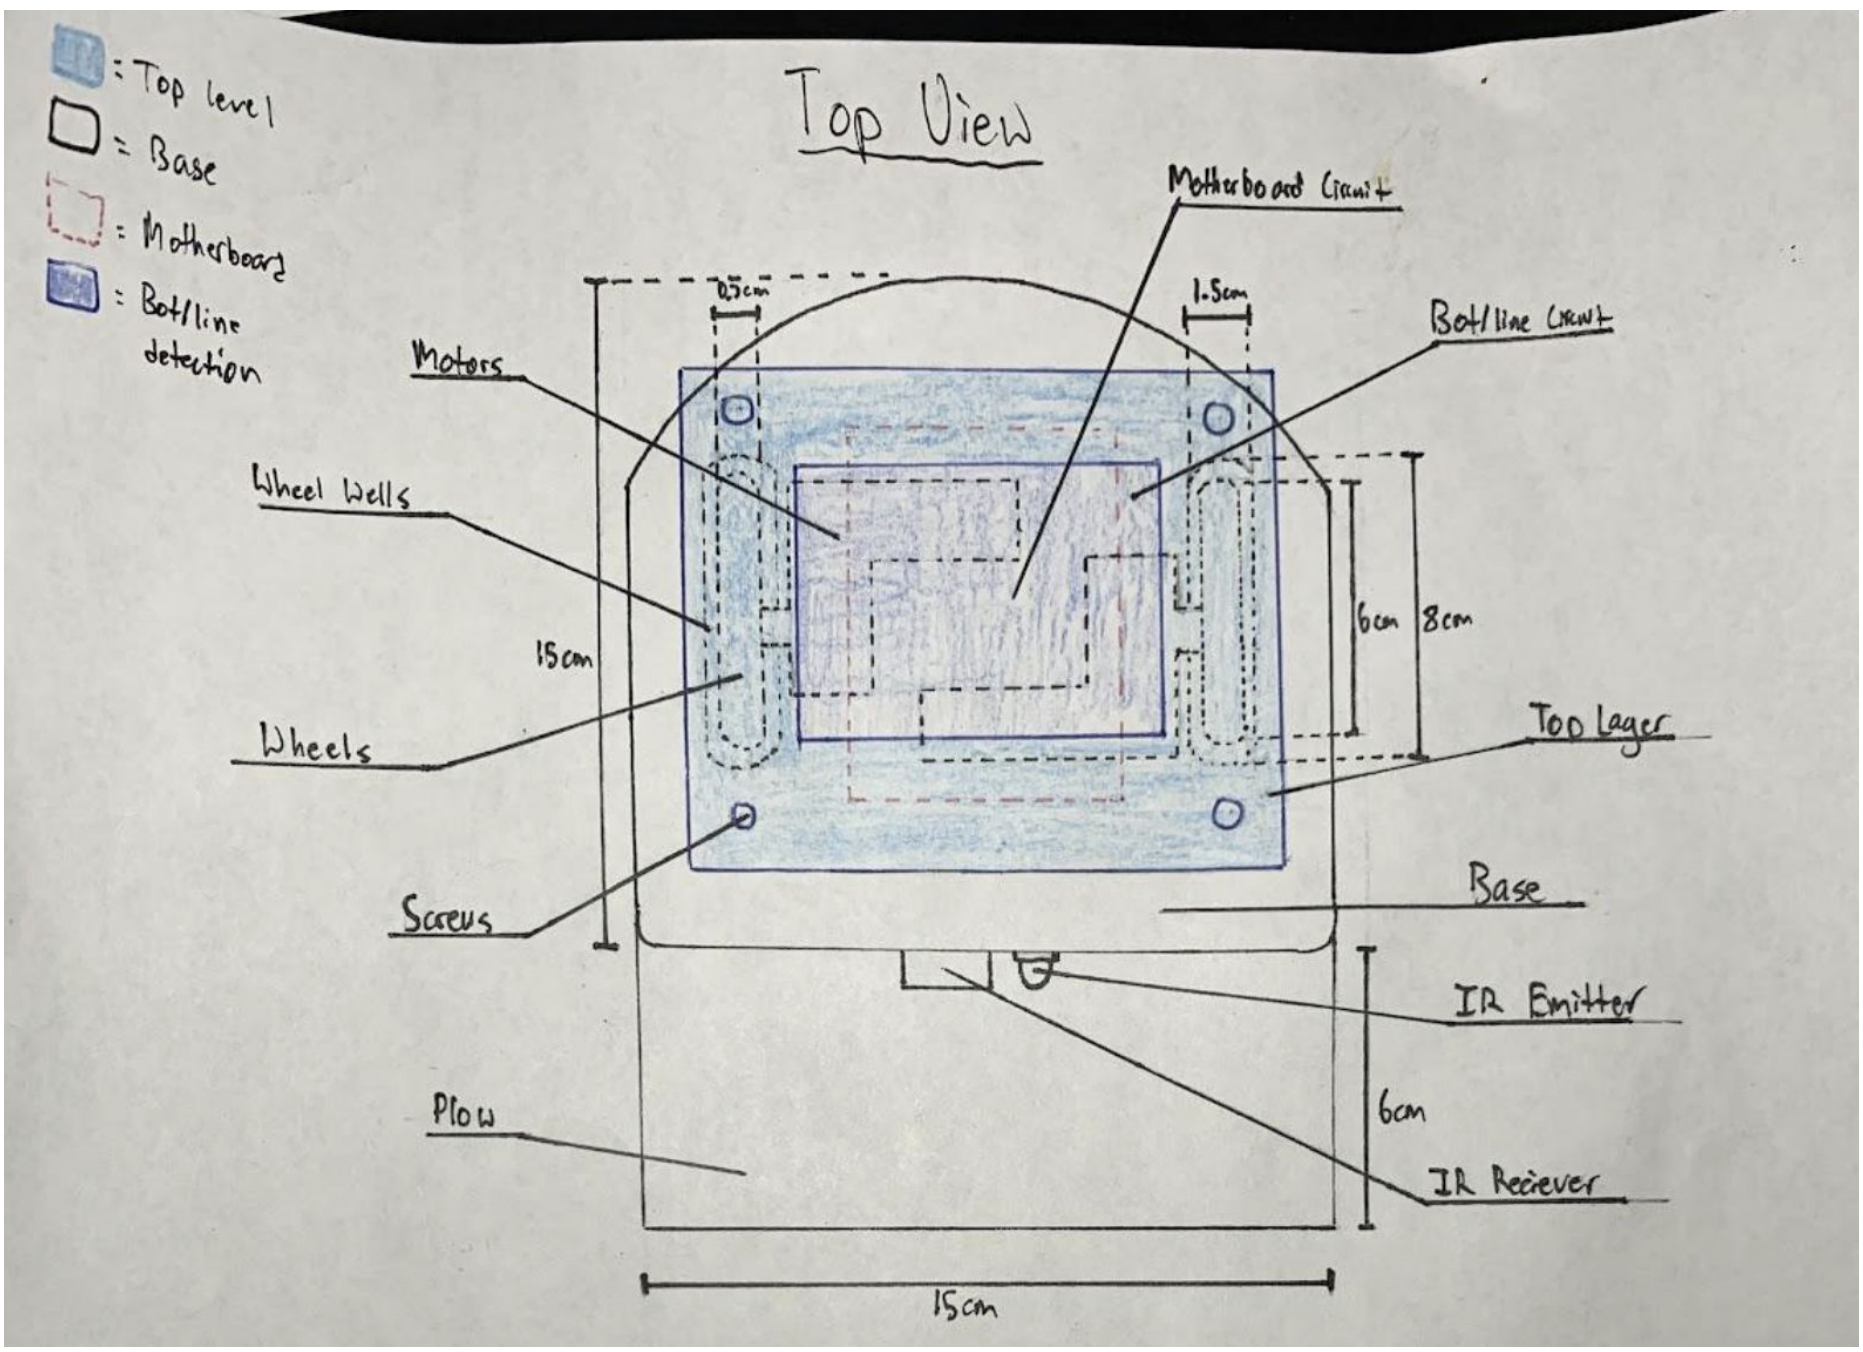 = Top level
= Base
= Motherboard
= Bot/line
detection
Top View
Motherboard Circuit
0.7cm
1.5cm
Bot/line Circuit
Motors
Wheel Wells
15cm
6cm
8cm
Wheels
Top Layer
Screws
Base
IR Emitter
Plow
6cm
IR Reciever
15cm